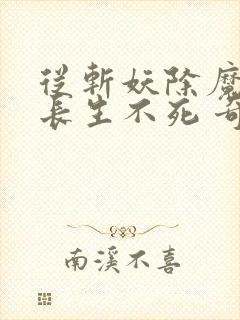 從斬妖除魔
長生不死 奇
南溪不喜